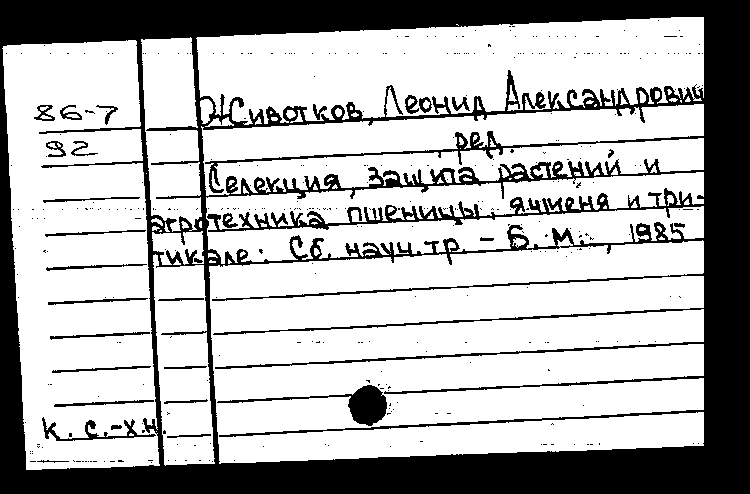 86-7
92
Животков, Леонид Александрович
, ред.
Селекция, защита растений и
агротехника пшеницы, ячменя и три-
тикале: Сб. науч. тр. - Б. м., 1985
к. с.-х.н.